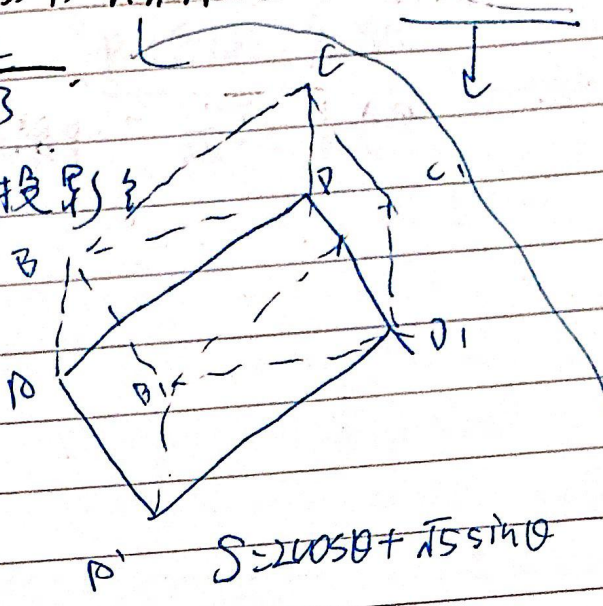 3
投影
C
D
C₁
B
A
B₁
D₁
A'
S=2cosθ+√5sinθ